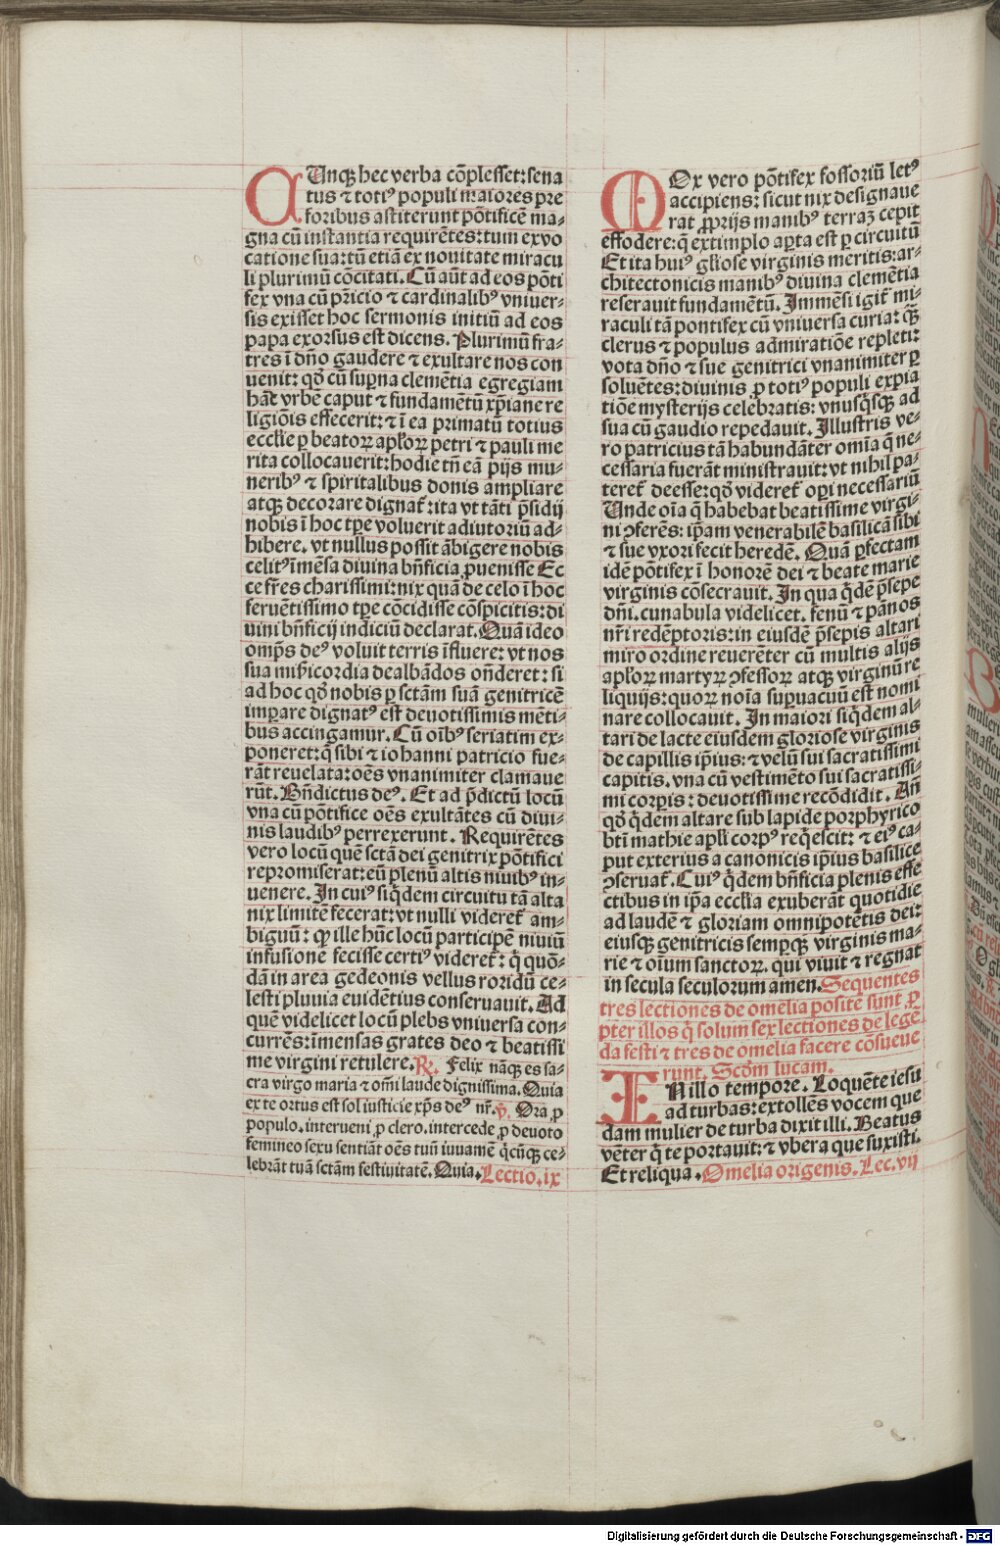 CUnqꝫ hec verba cōplesset: sena
tus ⁊ totiꝰ populi maiores pre
foribus astiterunt pōtificē ma⸗
gna cū instantia requirētes: tum ex vo
catione sua: tū etiā ex nouitate miracu
li plurimū cōcitati. Cū aūt ad eos pōti
fex vna cū pr̄icio ⁊ cardinalibꝰ vniuer⸗
sis exisset hoc sermonis initiū ad eos
papa exorsus est dicens. Plurimū fra⸗
tres ī dn̄o gaudere ⁊ exultare nos con
uenit: qđ cū suꝑna clemētia egregiam
hāc vrbē caput ⁊ fundamētū xp̄iane re
ligiōis effecerit: ⁊ ī ea primatū totius
eccl̄ie ꝑ beatoꝝ apl̄oꝝ petri ⁊ pauli me
rita collocauerit: hodie tn̄ eā pijs mu⸗
neribꝰ ⁊ spiritalibus donis ampliare
atqꝫ decorare dignat᷑: ita vt tāti p̄sidij
nobis ī hoc tp̄e voluerit adiutoriū ad⸗
hibere. vt nullus possit ābigere nobis
celitꝰ īmēsa diuina bn̄ficia ꝓuenisse Ec
ce fr̄es charissimi: nix quā de celo ī hoc
feruētissimo tp̄e cōcidisse cōspicitis: di
uini bn̄ficij indiciū declarat. Quā ideo
omp̄s deꝰ voluit terris īfluere: vt nos
sua mi⁹icordia dealbādos on̄deret: si
ad hoc qđ nobis ꝑ sctām suā genitricē
imꝑare dignatꝰ est deuotissimis mēti⸗
bus accingamur. Cū oībꝰ seriatim ex⸗
poneret: q̄ sibi ⁊ iohanni patricio fue⸗
rāt reuelata: oēs vnanimiter clamaue
rūt. Bn̄dictus deꝰ. Et ad p̄dictū locū
vna cū pōtifice oēs exultātes cū diui⸗
nis laudibꝰ perrexerunt. Requirētes
vero locū quē sctā dei genitrix pōtifici
repromiserat: eū plenū altis niuibꝰ in⸗
uenere. In cuiꝰ siq̄dem circuitu tā alta
nix limitē fecerat: vt nulli videret᷑ am⸗
biguū: qꝙ ille hūc locū participē niuiū
infusione fecisse certiꝰ videret᷑: q̄ quō⸗
dā in area gedeonis vellus roridū ce⸗
lesti pluuia euidētius conseruauit. Ad
quē videlicet locū plebs vniuersa con⸗
currēs: īmensas grates deo ⁊ beatissi
me virgini retulere. ℞. Felix nāqꝫ es sa⸗
cra virgo maria ⁊ om̄i laude dignissima. Quia
ex te ortus est sol iusticie xp̄s deꝰ nr̄. ℣. Ora ꝓ
populo. interueni ꝓ clero. intercede ꝓ deuoto
femineo sexu sentiāt oēs tuū iuuamē q̄cūqꝫ ce⸗
lebrāt tuā sctām festiuitatē. Quia. Lectio. ix
MOx vero pōtifex fossoriū letꝰ
accipiens: sicut nix designaue
rat ꝓprijs manibꝰ terraꝫ cepit
effodere: q̄ extimplo aꝑta est ꝑ circuitū
Et ita huiꝰ gl̄iose virginis meritis: ar⸗
chitectonicis manibꝰ diuina clemētia
reserauit fundamētū. Immēsi igit᷑ mi⸗
raculi tā pontifex cū vniuersa curia: qꝙ̄
clerus ⁊ populus admiratiōe repleti:
vota dn̄o ⁊ sue genitrici vnanimiter ꝑ
soluētes: diuinis ꝓ totiꝰ populi expia
tiōe mysterijs celebratis: vnusq̄sqꝫ ad
sua cū gaudio repedauit. Illustris ve⸗
ro patricius tā habundāter omīa q̄ ne⸗
cessaria fuerāt ministrauit: vt nihil pa⸗
teret᷑ deesse: qđ videret᷑ oꝑi necessariū
Unde oīa q̄ habebat beatissime virgi⸗
ni ꝯferēs: ip̄am venerabilē basilicā sibi
⁊ sue vxori fecit heredē. Quā ꝑfectam
idē pōtifex ī honorē dei ⁊ beate marie
virginis cōsecrauit. In qua q̄dē p̄sepe
dn̄i. cunabula videlicet. fenū ⁊ pānos
nr̄i redēptoris: in eiusdē p̄sepis altari
miro ordine reuerēter cū multis alijs
apl̄oꝝ martyꝝ ꝯfessoꝝ atqꝫ virginū re
liquijs: quoꝝ noīa suꝑuacuū est nomi
nare collocauit. In maiori siq̄dem al⸗
tari de lacte eiusdem gloriose virginis
de capillis ip̄ius: ⁊ velū sui sacratissimi
capitis. vna cū vestimēto sui sacratissi⸗
mi corꝑis: deuotissime recōdidit. An̄
qđ q̄dem altare sub lapide porphyrico
bt̄i mathie apl̄i corpꝰ req̄escit: ⁊ eiꝰ ca⸗
put exterius a canonicis ip̄ius basilice
ꝯseruat᷑. Cuiꝰ q̄dem bn̄ficia plenis effe
ctibus in ip̄a eccl̄ia exuberāt quotidie
ad laudē ⁊ gloriam omnipotētis dei:
eiusqꝫ genitricis semꝑqꝫ virginis ma⸗
rie ⁊ oīum sanctoꝝ. qui viuit ⁊ regnat
in secula seculorum amen. Sequentes
tres lectiones de omelia posite sunt ꝓ
pter illos q̄ solum sex lectiones de legē
da festi ⁊ tres de omelia facere cōsueue
runt. Scd̄m lucam.
IN illo tempore. Loquēte iesu
ad turbas: extollēs vocem que
dam mulier de turba dixit illi. Beatus
vēter q̄ te portauit: ⁊ vbera que suxisti.
Et reliqua. Omelia origenis. Lec. vij
Digitalisierung gefördert durch die Deutsche Forschungsgemeinschaft - DFG